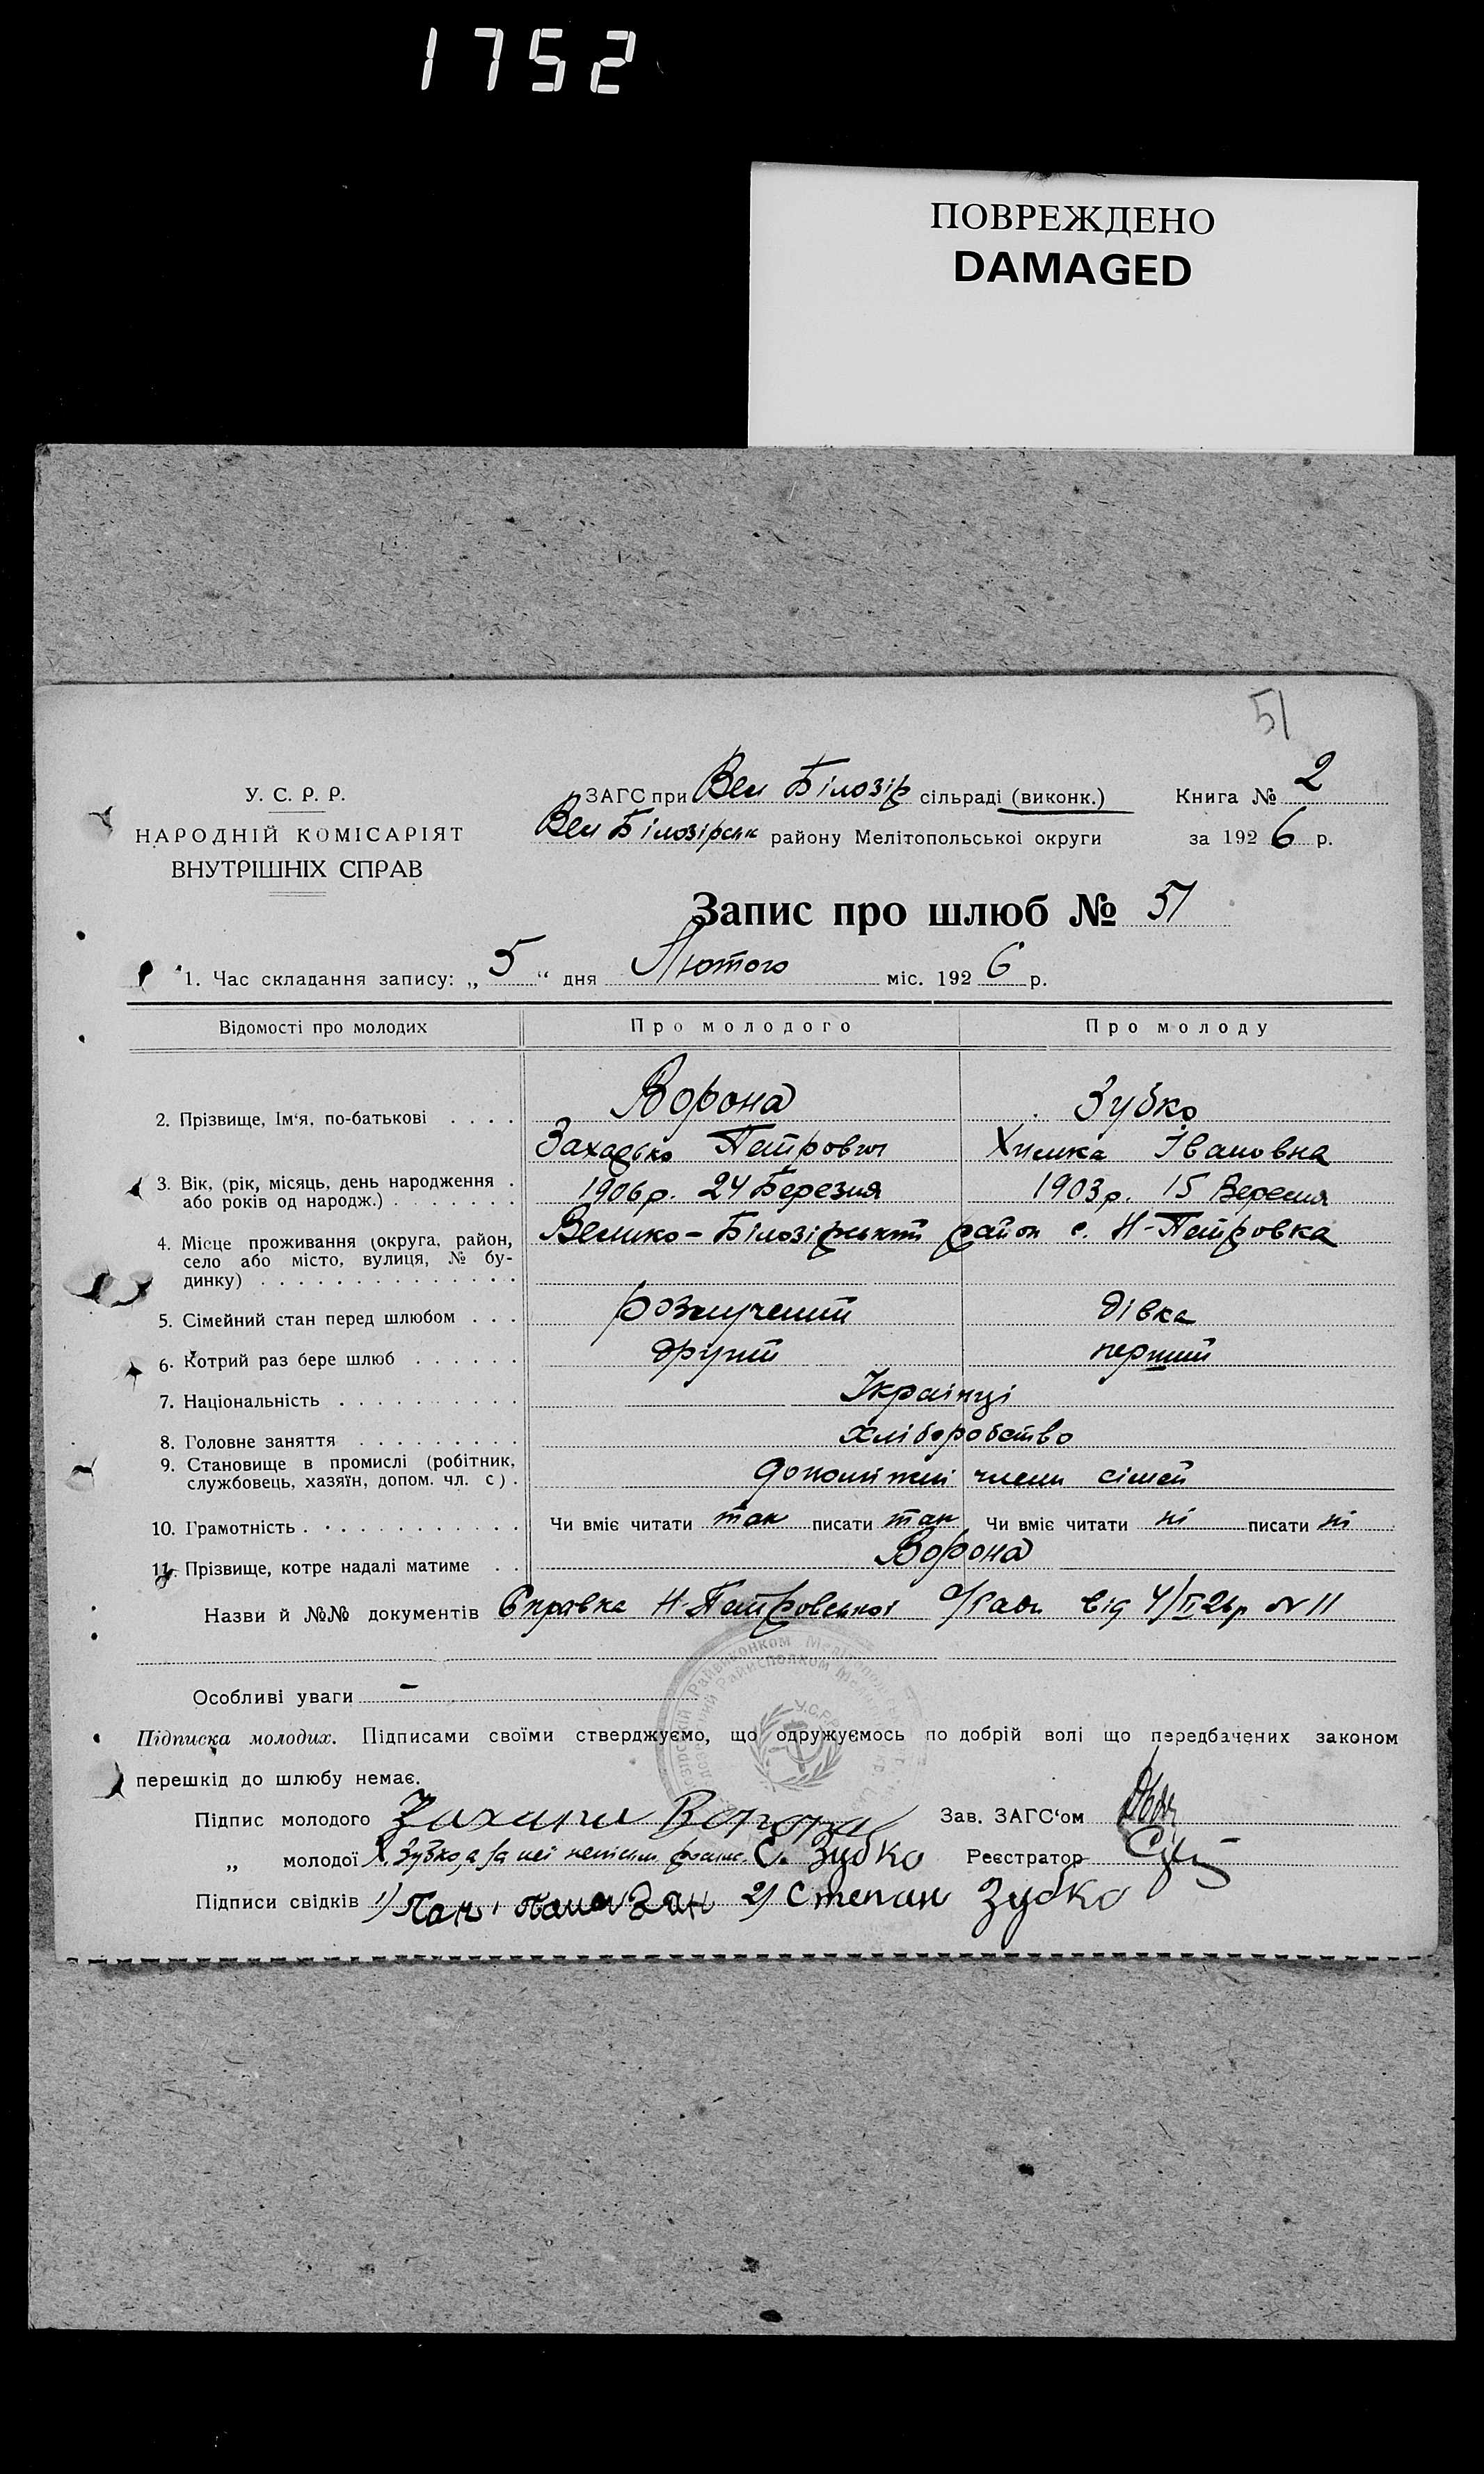 1752
ПОВРЕЖДЕНО
DAMAGED
51
У. С. Р. Р.
НАРОДНІЙ КОМІСАРІЯТ
ВНУТРІШНІХ СПРАВ
ЗАГС при Вел Білозір сільраді (виконк.)
Вел Білозірськ району Мелітопольської округи
Книга № 2
за 1926 р.
Запис про шлюб № 51
1. Час складання запису: „5“ дня Лютого міс. 1926 р.
Відомості про молодих Про молодого Про молоду
2. Прізвище, Ім'я, по-батькові . . . . Ворона Зубко
Петрович Химка Івановна
3. Вік, (рік, місяць, день народження . або років од народж.) . . . . . . . 1906 р. 24 Березня 1903 р. 15 Вересня
4. Місце проживання (округа, район, Велико-Білозірський район с. Н-Петровка
село або місто, вулиця, № бу-
динку) . . . . . . . . . . . . . .
5. Сімейний стан перед шлюбом . . . розлучений дівка
6. Котрий раз бере шлюб . . . . . . другий перший
7. Національність . . . . . . . . . . Українці
8. Головне заняття . . . . . . . . . хліборобство
9. Становище в промислі (робітник, службовець, хазяїн, допом. чл. с) . допоміжні члени сімей
10. Грамотність . . . . . . . . . . . . Чи вміє читати так писати так Чи вміє читати ні писати ні
11. Прізвище, котре надалі матиме . . Ворона
Назви й №№ документів Справка Н-Петровської с/Ради від 4/II 26р № 11
Особливі уваги –
Підписка молодих. Підписами своїми стверджуємо, що одружуємось по добрій волі що передбачених законом
перешкід до шлюбу немає.
Підпис молодого Ворона Зав. ЗАГС'ом
„ молодої Х. Зубко, а за неї С. Зубко Реєстратор
Підписи свідків 1) 2) Степан Зубко